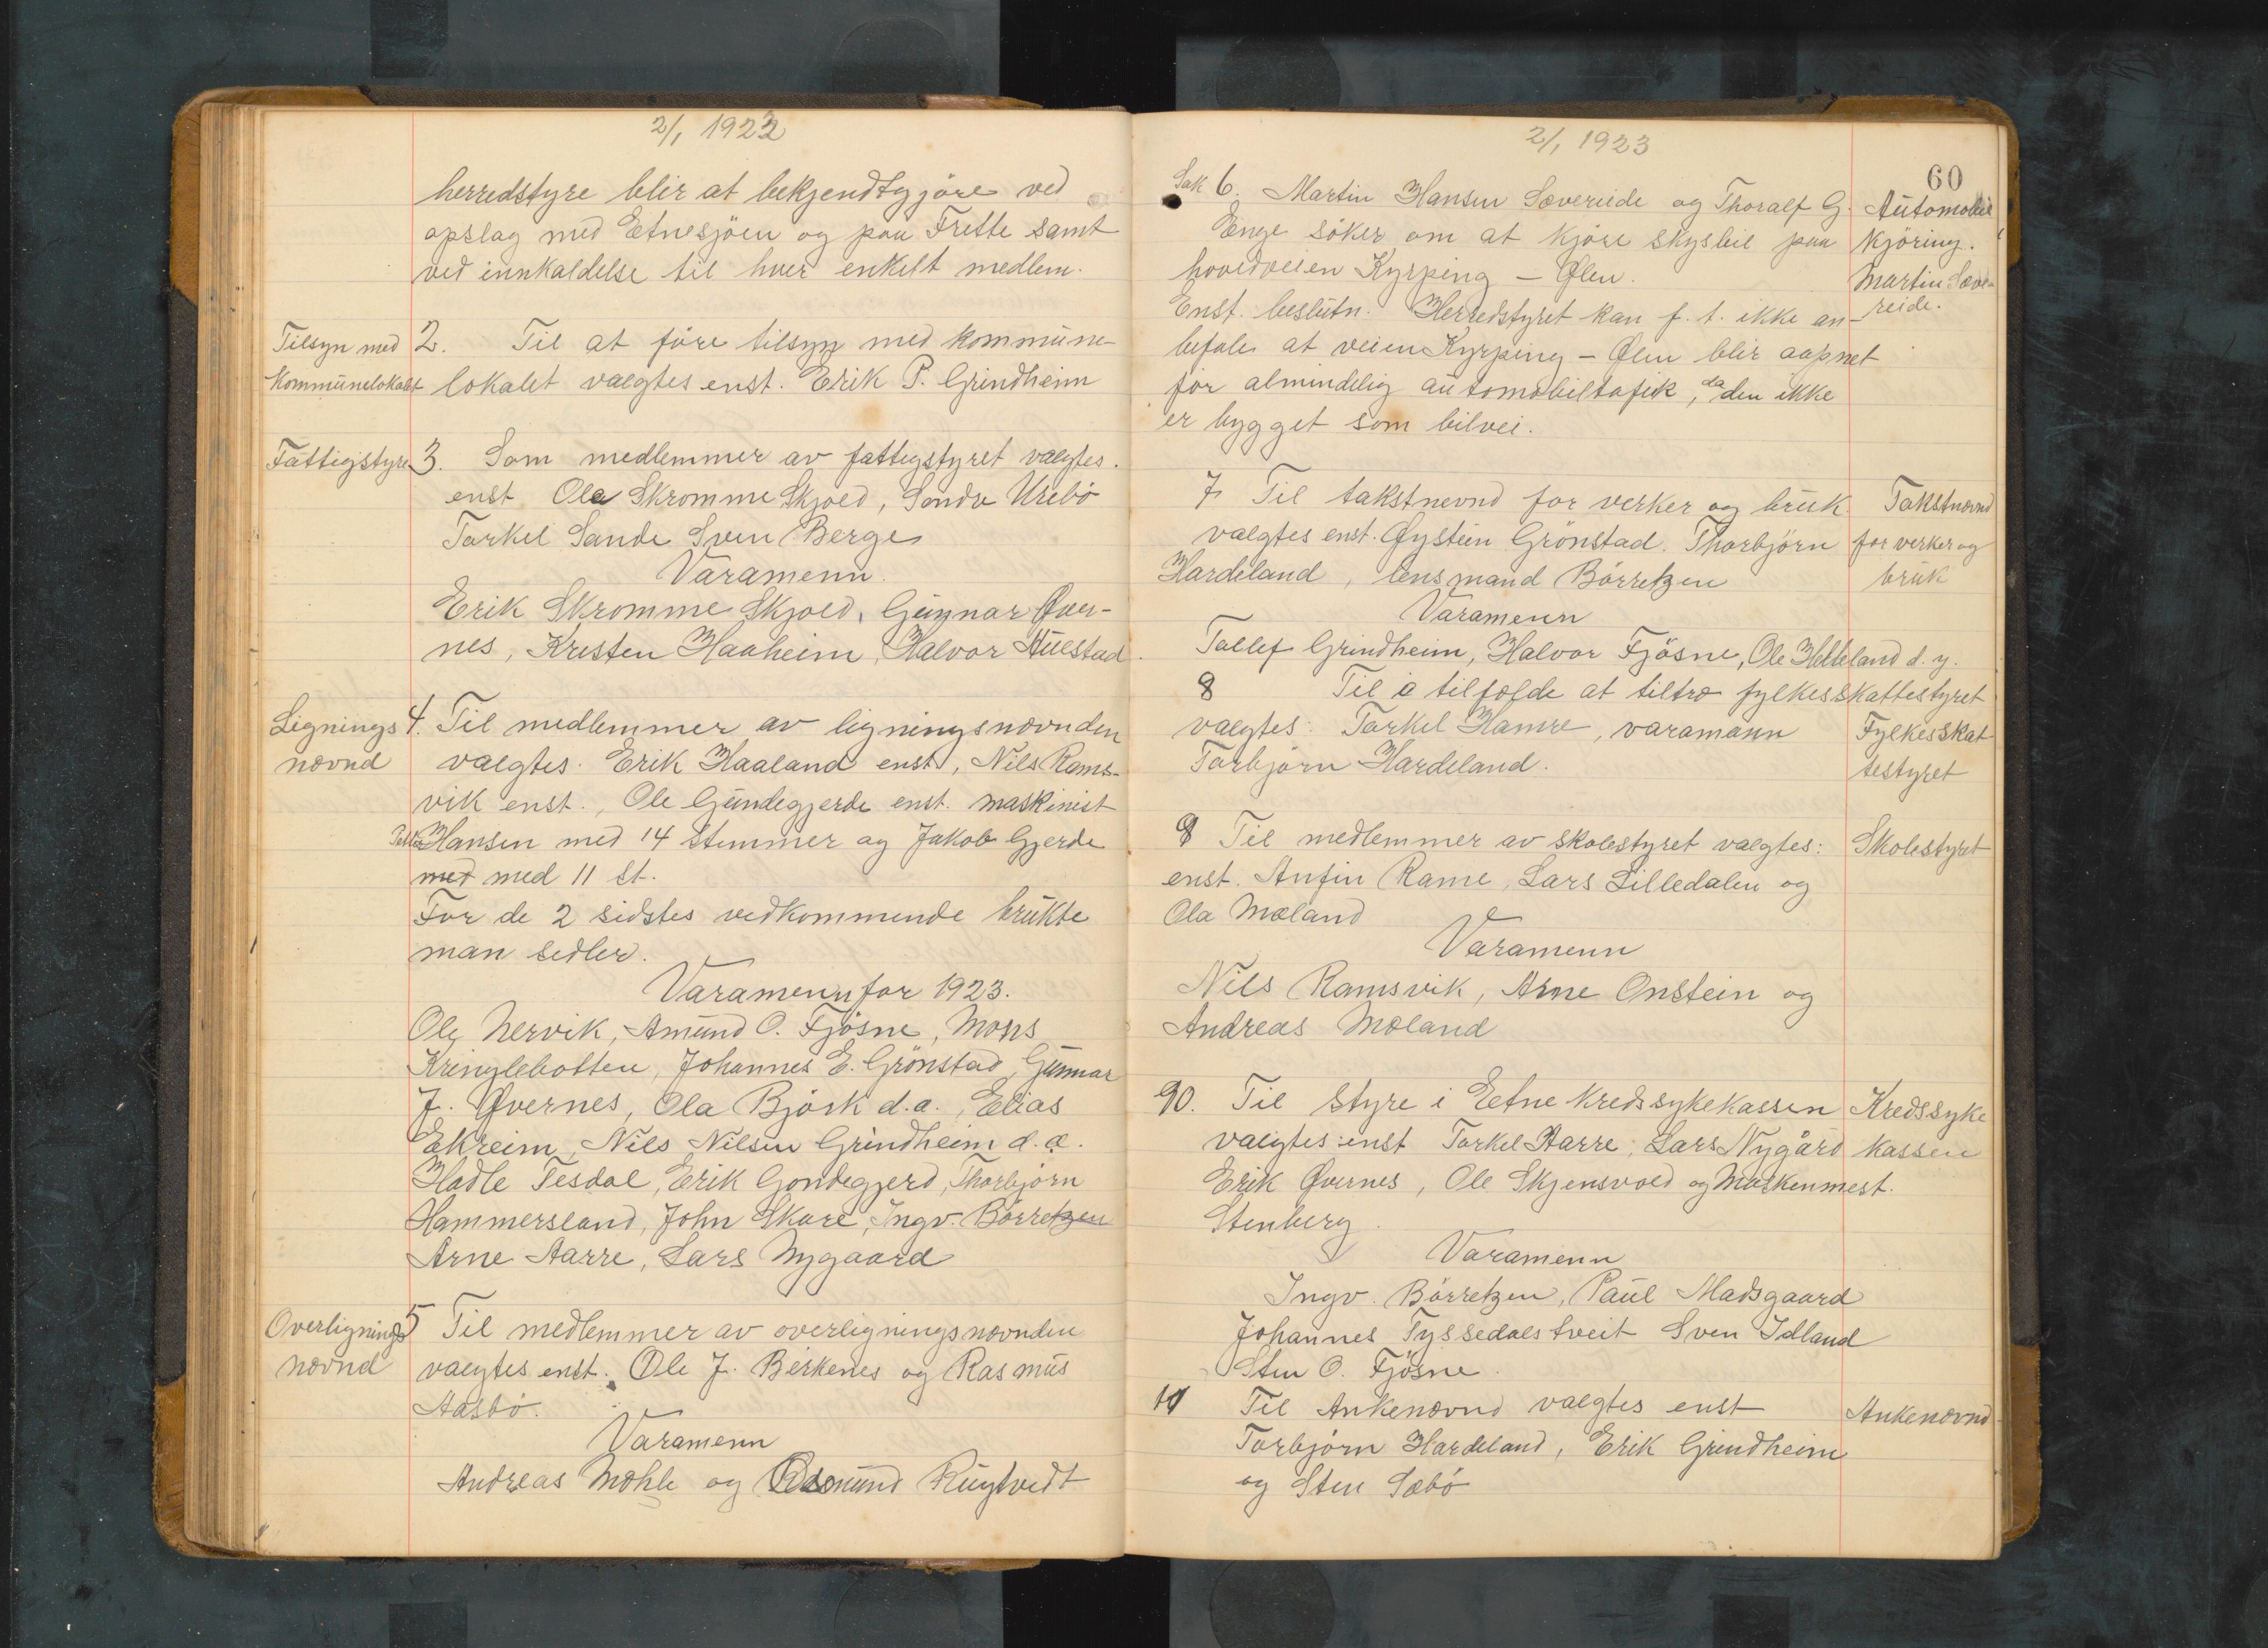 2/1 1923
herredstyre blir at bekjendtgjöre ved
opslag med Etnesjöen og paa Frette samt
ved innkaldelse til hver enkelt medlem.
Tilsyn med
Kommunelokalet
2. Til at före tilsyn med kommune-
lokalet valgtes enst. Erik P. Grindheim
Fattigstyre
3. Som medlemmer av fattigstyret valgtes.
enst Ola Skromme Skjold, Sondre Urebö
Torkel Sande Sven Berge
Varamenn.
Erik Skromme Skjold, Gunnar Øver-
nes, Kristen Haaheim, Halvor Austad.
Lignings
nævnd
4. Til medlemmer av ligningsnævnden
valgtes. Erik Haaland enst, Nils Rams-
vik enst., Ole Gundegjerde enst. maskinist
Hansen med 14 stemmer og Jakob Gjerde
med med 11 st.
For de 2 sidstes vedkommende brukte
man sedler.
Varamenn for 1923.
Ole Nervik, Amund O. Fjösne, Mons
Kringlebotten, Johannes E. Grönstad, Gunnar
J. Øvernes, Ola Björk d.a., Elias
Ekreim, Nils Nilsen Grindheim d.æ.
Hadle Tesdal, Erik Gondegjerd, Thorbjörn
Hammersland, John Skare, Ingv. Börretzen
Arne Aarre, Lars Nygaard
Overlignings
nævnd
5 Til medlemmer av overligningsnævnden
valgtes enst. Ole J. Birkenes og Rasmus
Aasbö.
Varamenn
Andreas Mæhle og Rugtvedt
2/1 1923
60
Sak 6. Martin Hansen Sævereide og Thoralf G.
Enge söker om at kjöre skysbil paa
hovedveien Kyrping – Ølen.
Enst. beslutn. Herredstyret kan f. t. ikke an-
befale at veien Kyrping – Ølen blir aapnet
for almindelig automobiltafik, da den ikke
er bygget som bilvei.
Automobil
kjöring.
Martin Sæve-
reide.
7 Til takstnevnd for verker og bruk
valgtes enst. Øystein Grönstad. Thorbjörn
Hardeland, lensmand Börretzen
Varamenn
Tollef Grindheim, Halvor Fjösne, Ole Helleland d. y.
Takstnævnd
for verker og
bruk
8 Til i tilfælde at tiltræ fylkesskattestyret
valgtes: Torkel Hamre, varamann
Torbjörn Hardeland.
Fylkesskat
testyret
9 Til medlemmer av skolestyret valgtes:
enst. Anfin Rame, Lars Lilledalen og
Ola Mæland
Varamenn
Nils Ramsvik, Arne Onstein og
Andreas Mæland
Skolestyret
10. Til styre i Etne Kredssykekassen
valgtes enst Torkel Aarre, Lars Nygård
Erik Øvernes, Ole Skjensvold og Maskenmest.
Stenberg.
Varamenn
Ingv. Börretzen, Paul Madsgaard
Johannes Tyssedalstveit Sven Idland
Sten O. Fjösne.
Kredssyke
kassen
11 Til Ankenævnd valgtes enst
Torbjörn Hardeland, Erik Grindheim
og Sten Sæbö
Ankenævnd